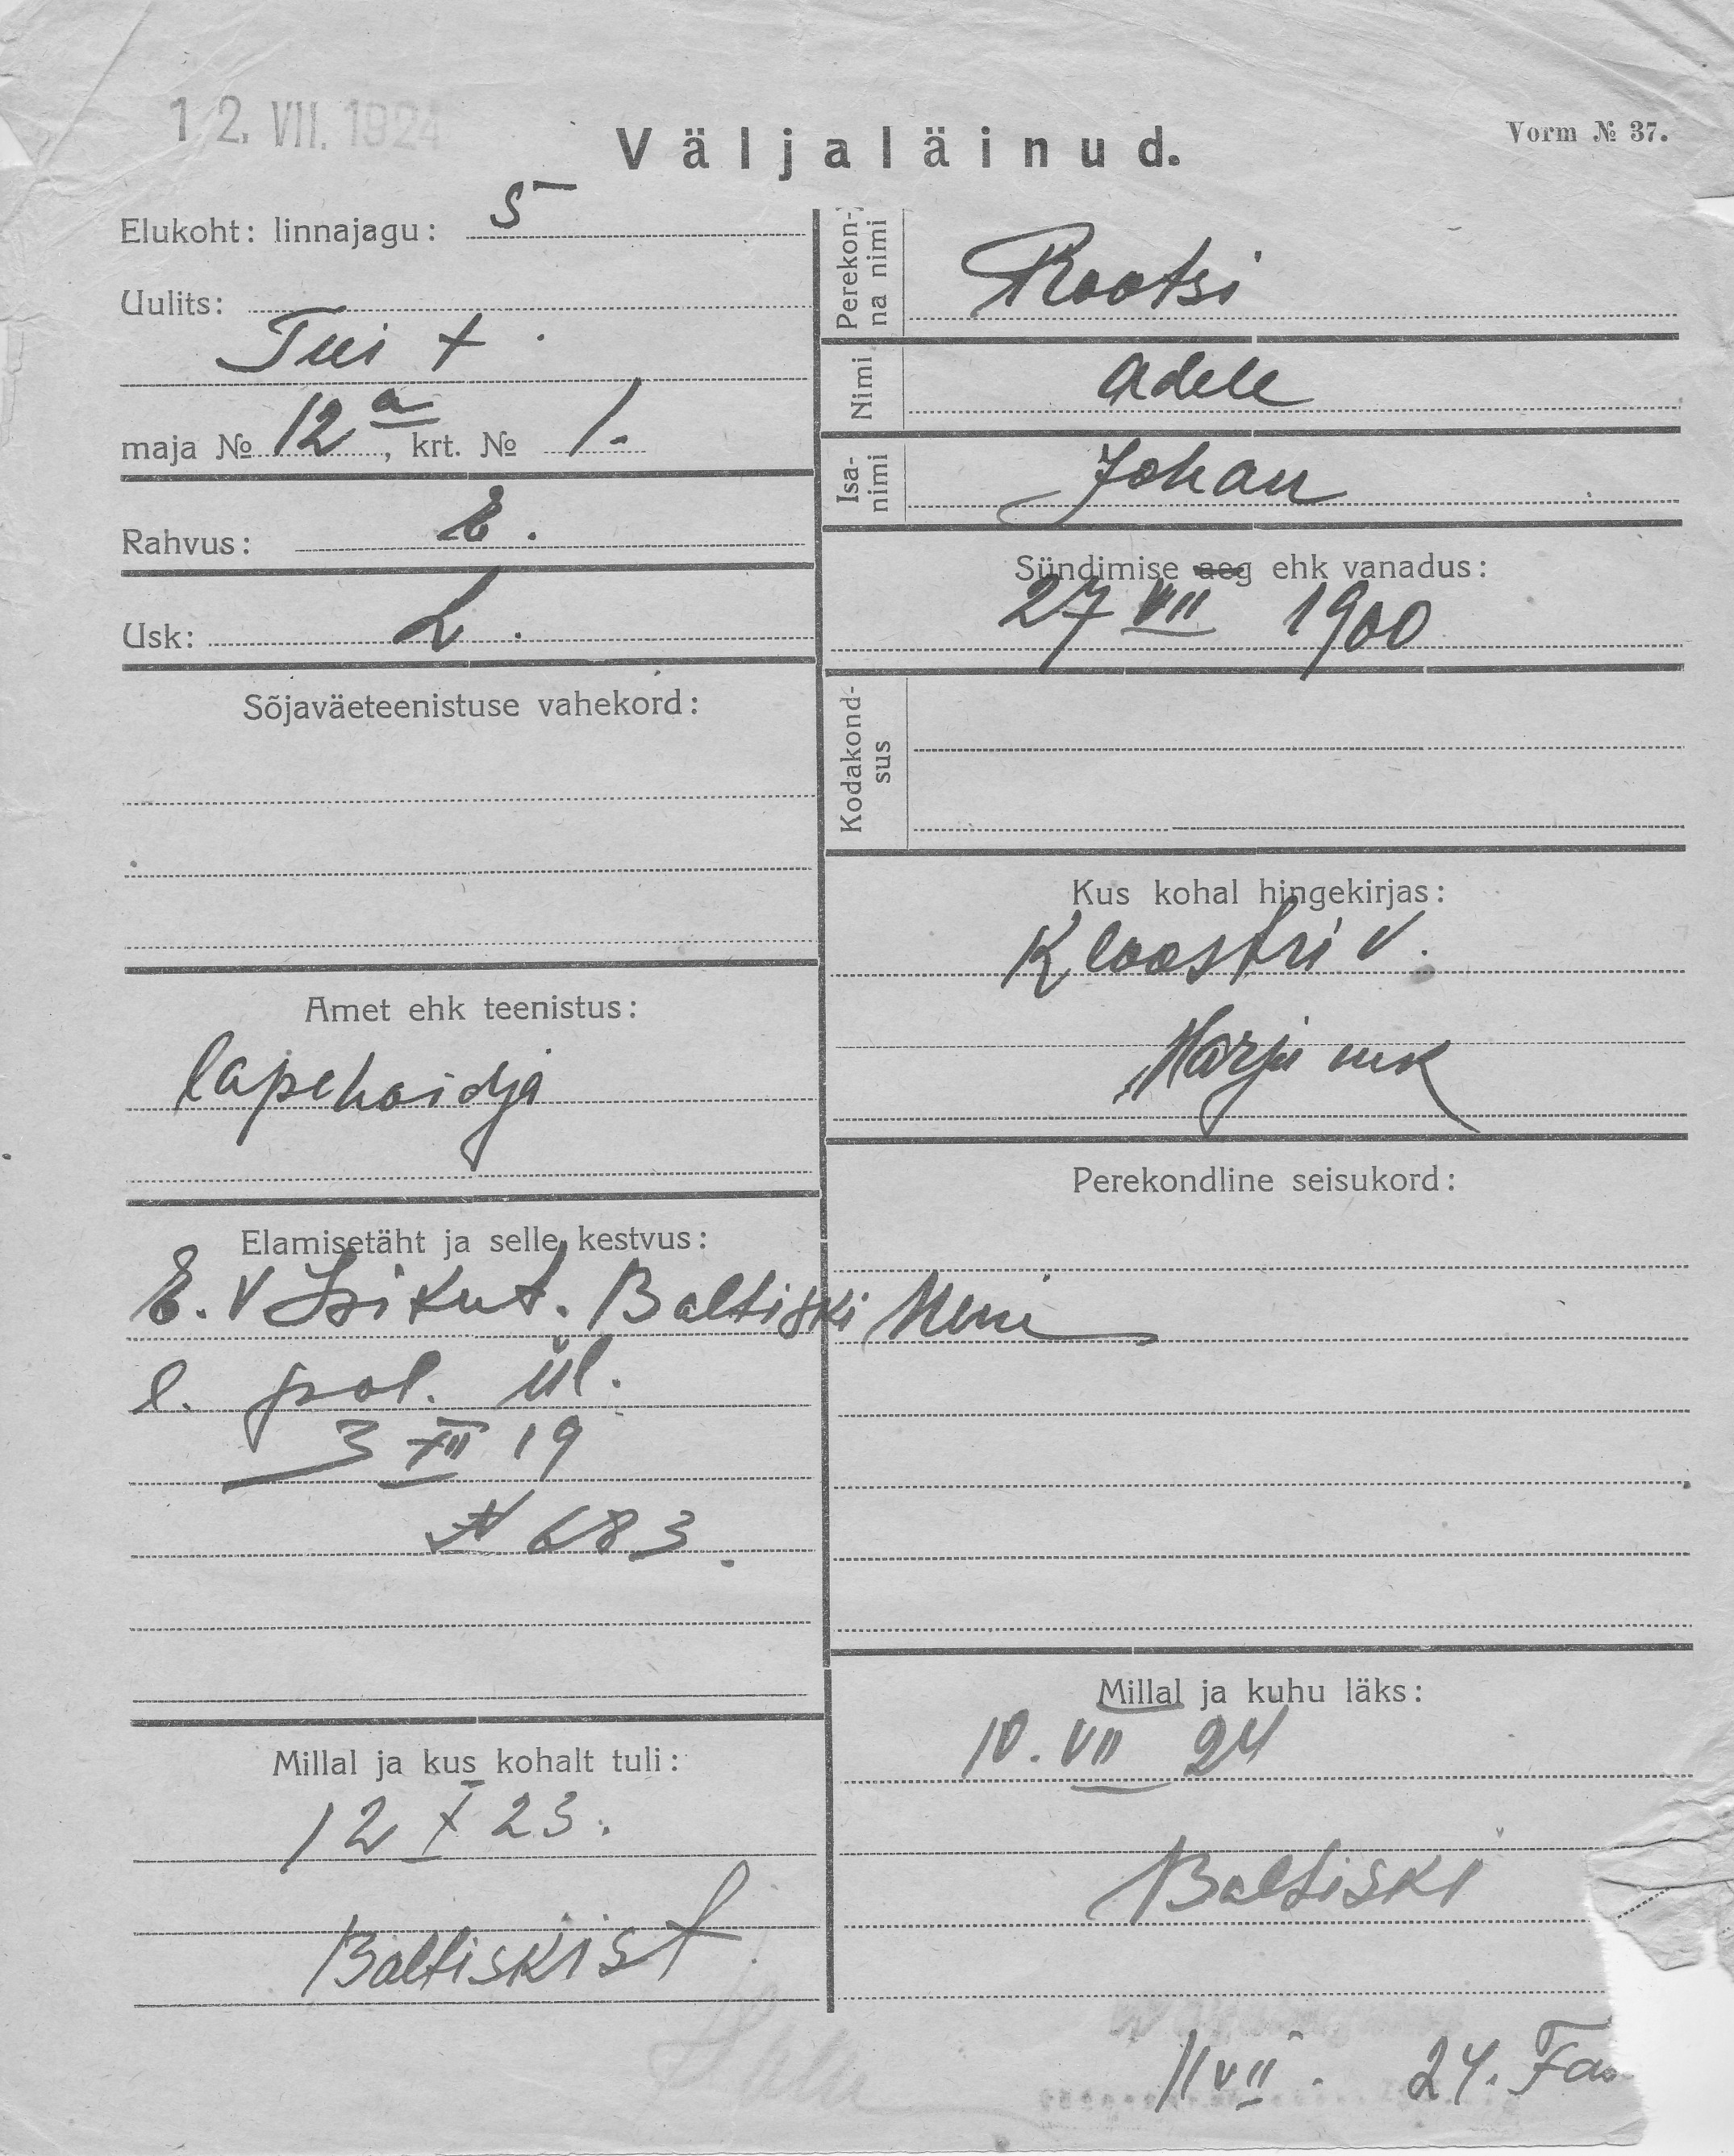 12. VII. 1924
Väljaläinud.
Vorm № 37.
Elukoht: linnajagu: 5
Uulits:
Tui t.
maja № 12a, krt. № 1.
Rahvus: E.
Usk: L.
Sõjaväeteenistuse vahekord:
Amet ehk teenistus:
lapehoidja
Elamisetäht ja selle kestvus:
E. V Isikut. Baltiski
l. pol. ül.
3 XII 19
№ 683.
Millal ja kus kohalt tuli:
12 X 23.
Baltiskist
Perekon-
na nimi
Rootsi
Nimi
Adele
Isa-
nimi
Johan
Sündimise aeg ehk vanadus:
27 VII 1900
Kodakond-
sus
Kus kohal hingekirjas:
Kloostri v.
Harju mk
Perekondline seisukord:
Millal ja kuhu läks:
10. VII 24
Baltiski
11 VII. 24.